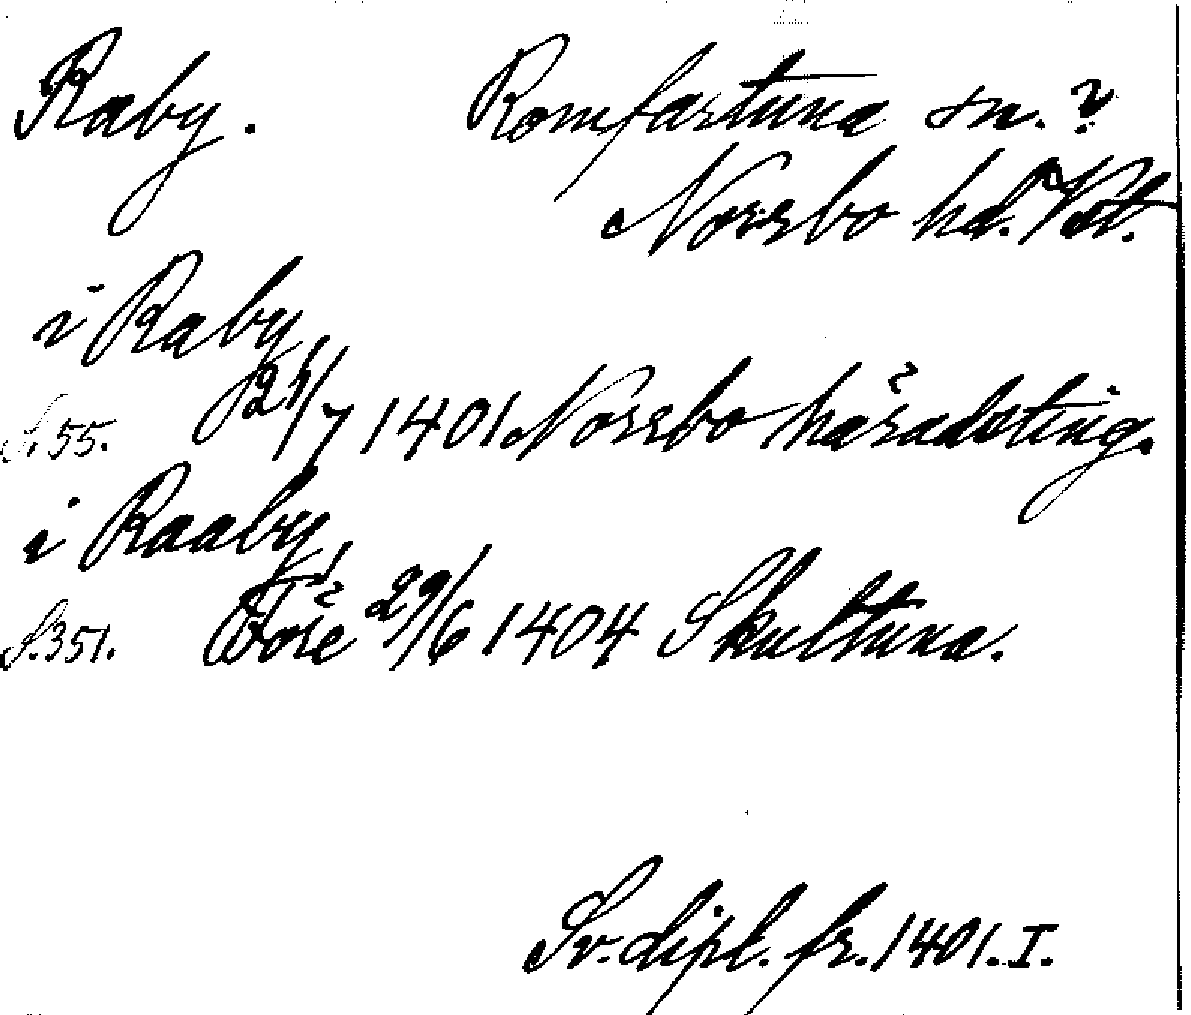 Raby. Romfartuna sn.?
Norrbo hd. Vstm.
i Raby
S. 55. 21/7 1401 Norrbo häradsting.
i Raaby
S. 351. Före 29/6 1404 Skultuna.
Sv. dipl. fr. 1401. I.